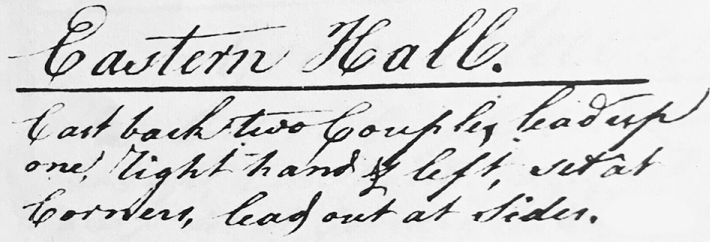 Eastern Hall.
Cast back two Couples, lead up
one, right hand & left, set at
Corners, lead out at sides.